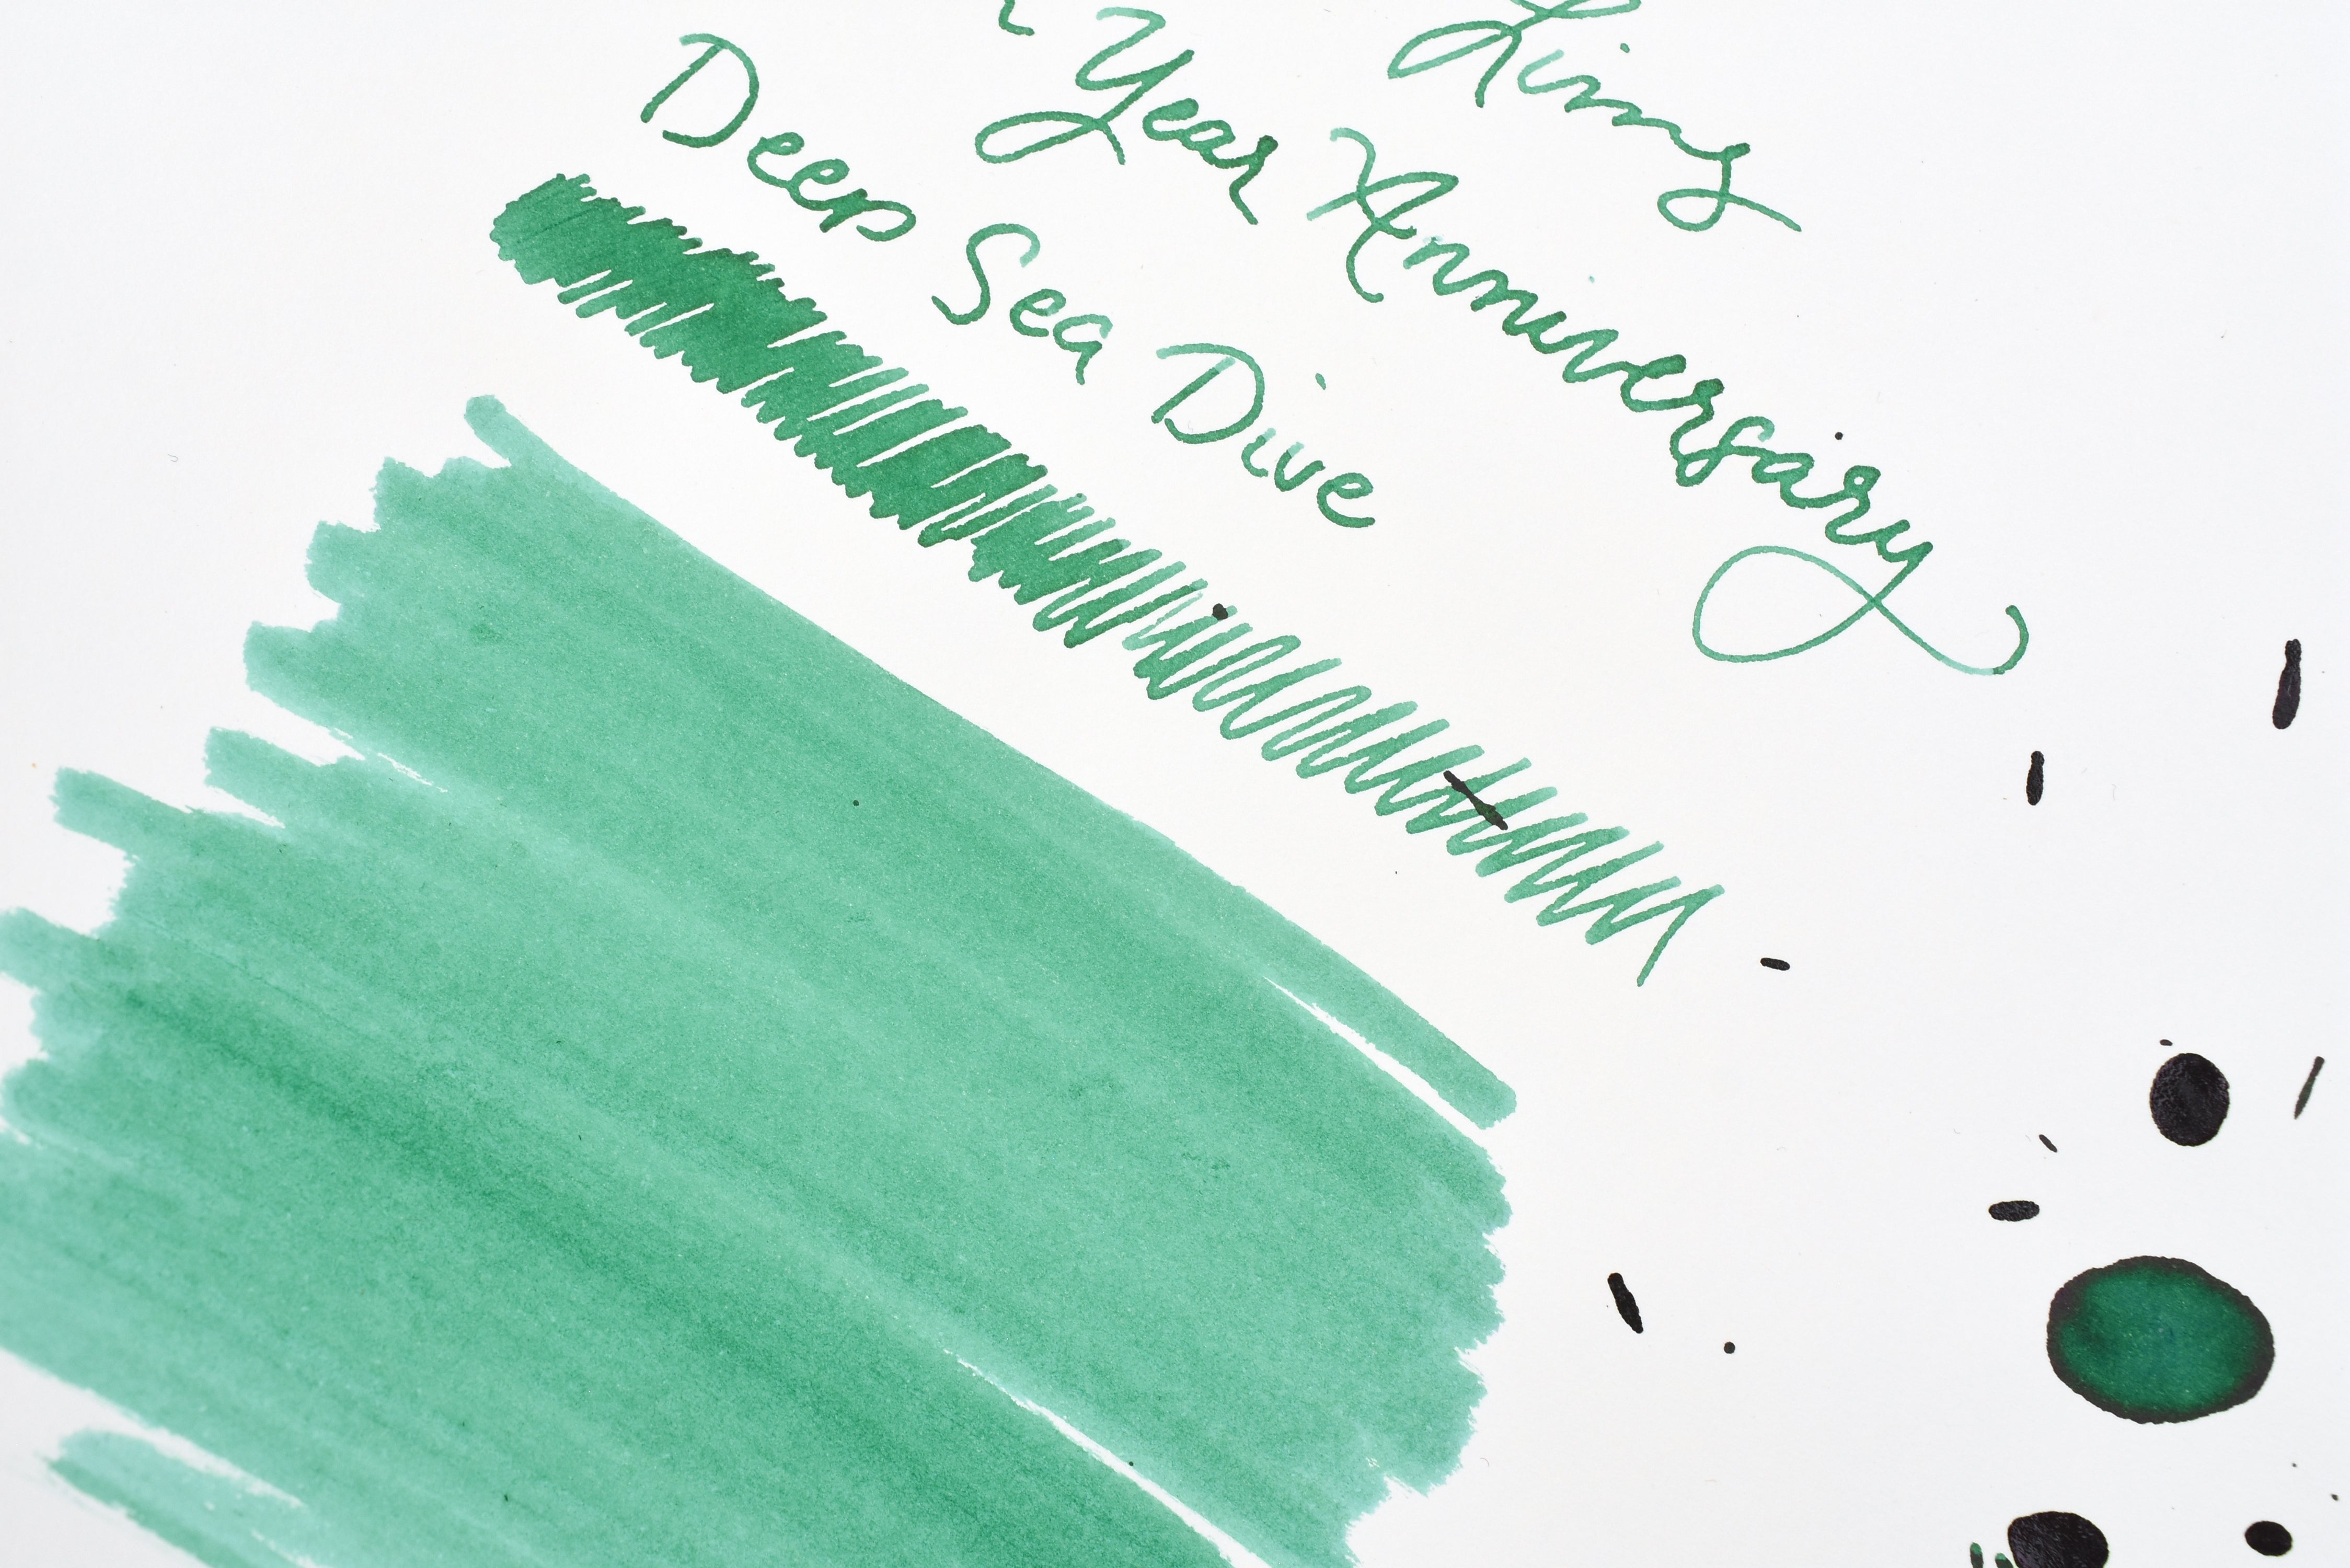 Year Anniversary
Deep Sea Dive